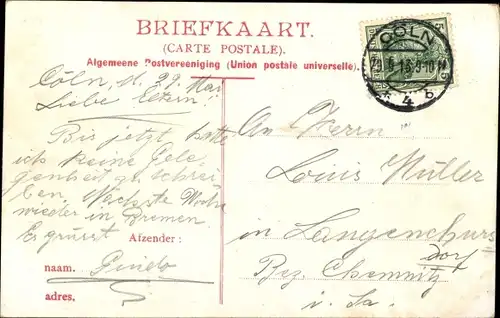 BRIEFKAART.
(CARTE POSTALE).
Algemeene Postvereeniging (Union postale universelle).
CÖLN
* 4 b
5
5
Cöln, d. 29. Mai
Liebe Eltern!
Bis jetzt hatte
ich keine Gele-
genheit zu schrei-
ben. Nächste Woche
wieder in Bremen.
Es grüsst
Afzender:
naam. Guido
adres.
An Herrn
Louis Müller
in Langenchurs
dorf
Bez. Chemnitz
i. Sa.